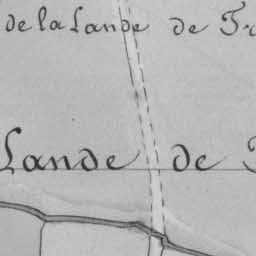 de la Lande de
Lande de